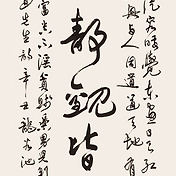 從容睡覺東窗日已紅
興與人同道通天地有
靜觀皆
富貴不淫貧賤樂男兒到
先生詩辛丑